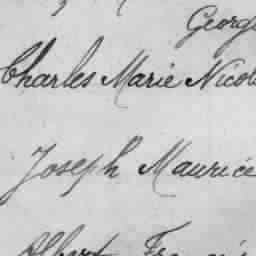 Georg
Charles Marie Nicol
Joseph Maurice
Albert Franç